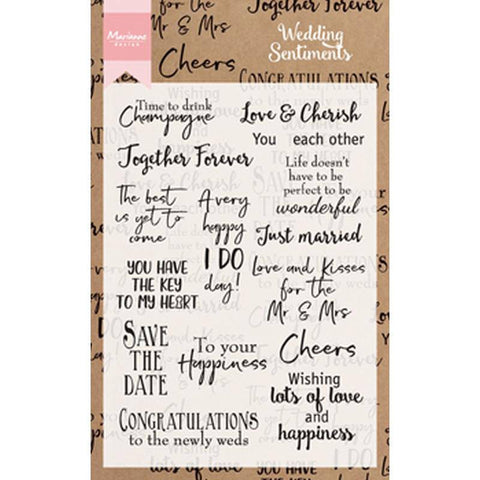 Together Forever
for the
Mr & Mrs
Cheers
Marianne
design
Wedding
Sentiments
CONGRATULATIONS
Time to drink
Champagne
Love & Cherish
You each other
Together Forever
Life doesn't
have to be
perfect to be
wonderful
The best
is yet to
come
A very
happy
I DO
day!
Just married
YOU HAVE
THE KEY
TO MY HEART
Love and Kisses
for the
Mr. & Mrs
SAVE
THE
DATE
To your
Happiness
Cheers
Wishing
lots of love
and
happiness
CONGRATULATIONS
to the newly weds
Wishing
lots of love
and
I DO